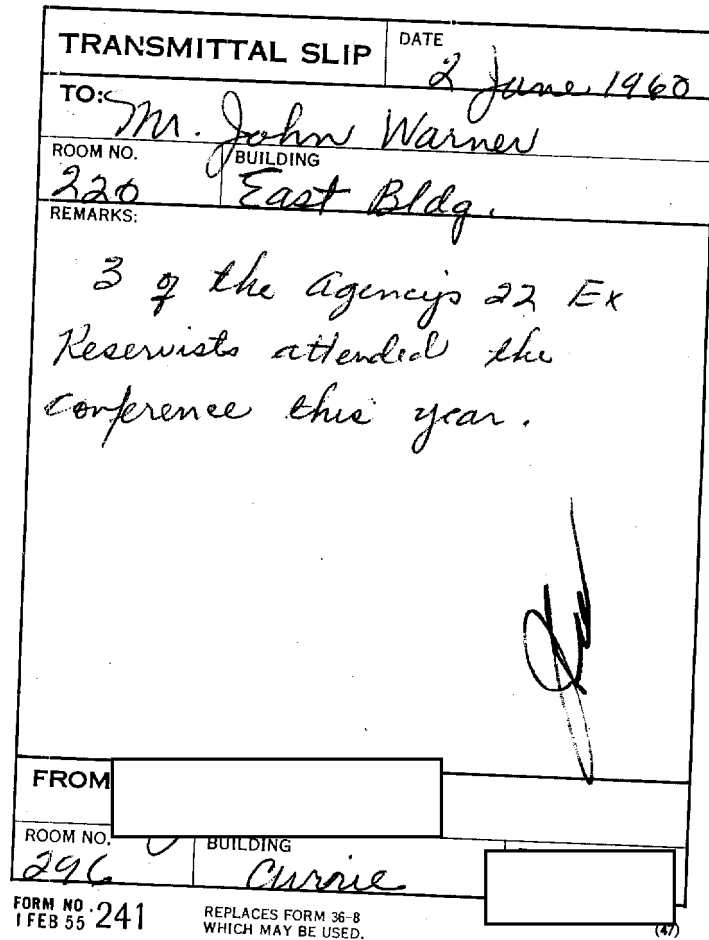 TRANSMITTAL SLIP
DATE
2 June 1960
TO:
Mr. John Warner
ROOM NO.
220
BUILDING
East Bldg.
REMARKS:
3 of the Agency's 22 Ex
Reservists attended the
conference this year.
FROM
ROOM NO.
296
BUILDING
Currie
FORM NO.
1 FEB 55
241
REPLACES FORM 36-8
WHICH MAY BE USED.
(47)